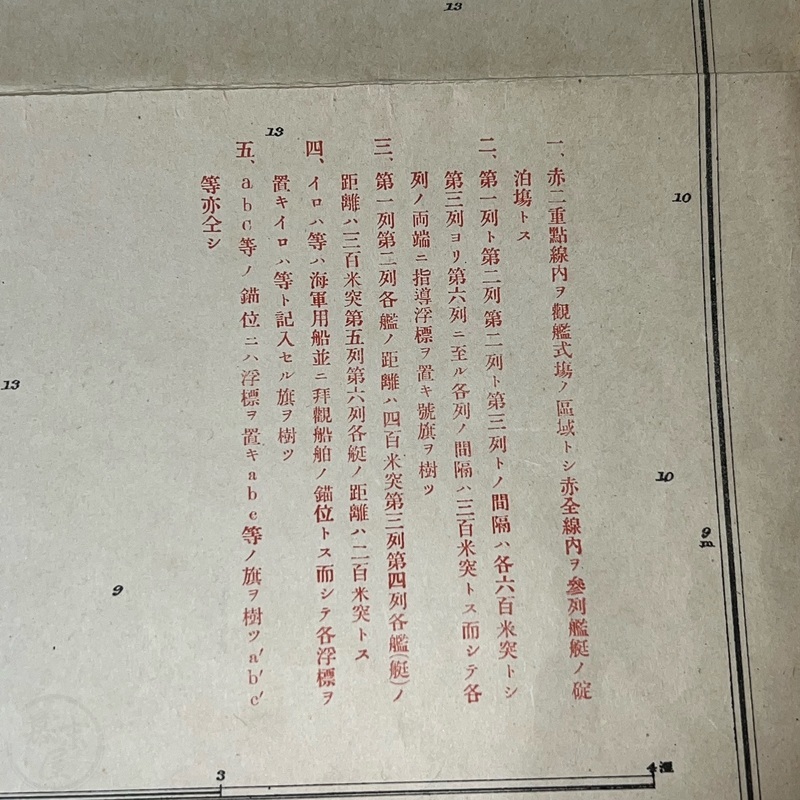 一、赤二重點線内ヲ觀艦式場ノ區域トシ赤全線内ヲ參列艦艇ノ碇
泊塲トス
二、第一列ト第二列第二列ト第三列トノ間隔ハ各六百米突トシ
第三列ヨリ第六列ニ至ル各列ノ間隔ハ三百米突トス而シテ各
列ノ両端ニ指導浮標ヲ置キ號旗ヲ樹ツ
三、第一列第二列各艦ノ距離ハ四百米突第三列第四列各艦(艇)ノ
距離ハ三百米突第五列第六列各艇ノ距離ハ二百米突トス
四、イロハ等ハ海軍用船並ニ拜觀船舶ノ錨位トス而シテ各浮標ヲ
置キイロハ等ト記入セル旗ヲ樹ツ
五、abc等ノ錨位ニハ浮標ヲ置キabc等ノ旗ヲ樹ツa'b'c'
等亦仝シ
13
13
10
13
10
9
m
9
3
4浬